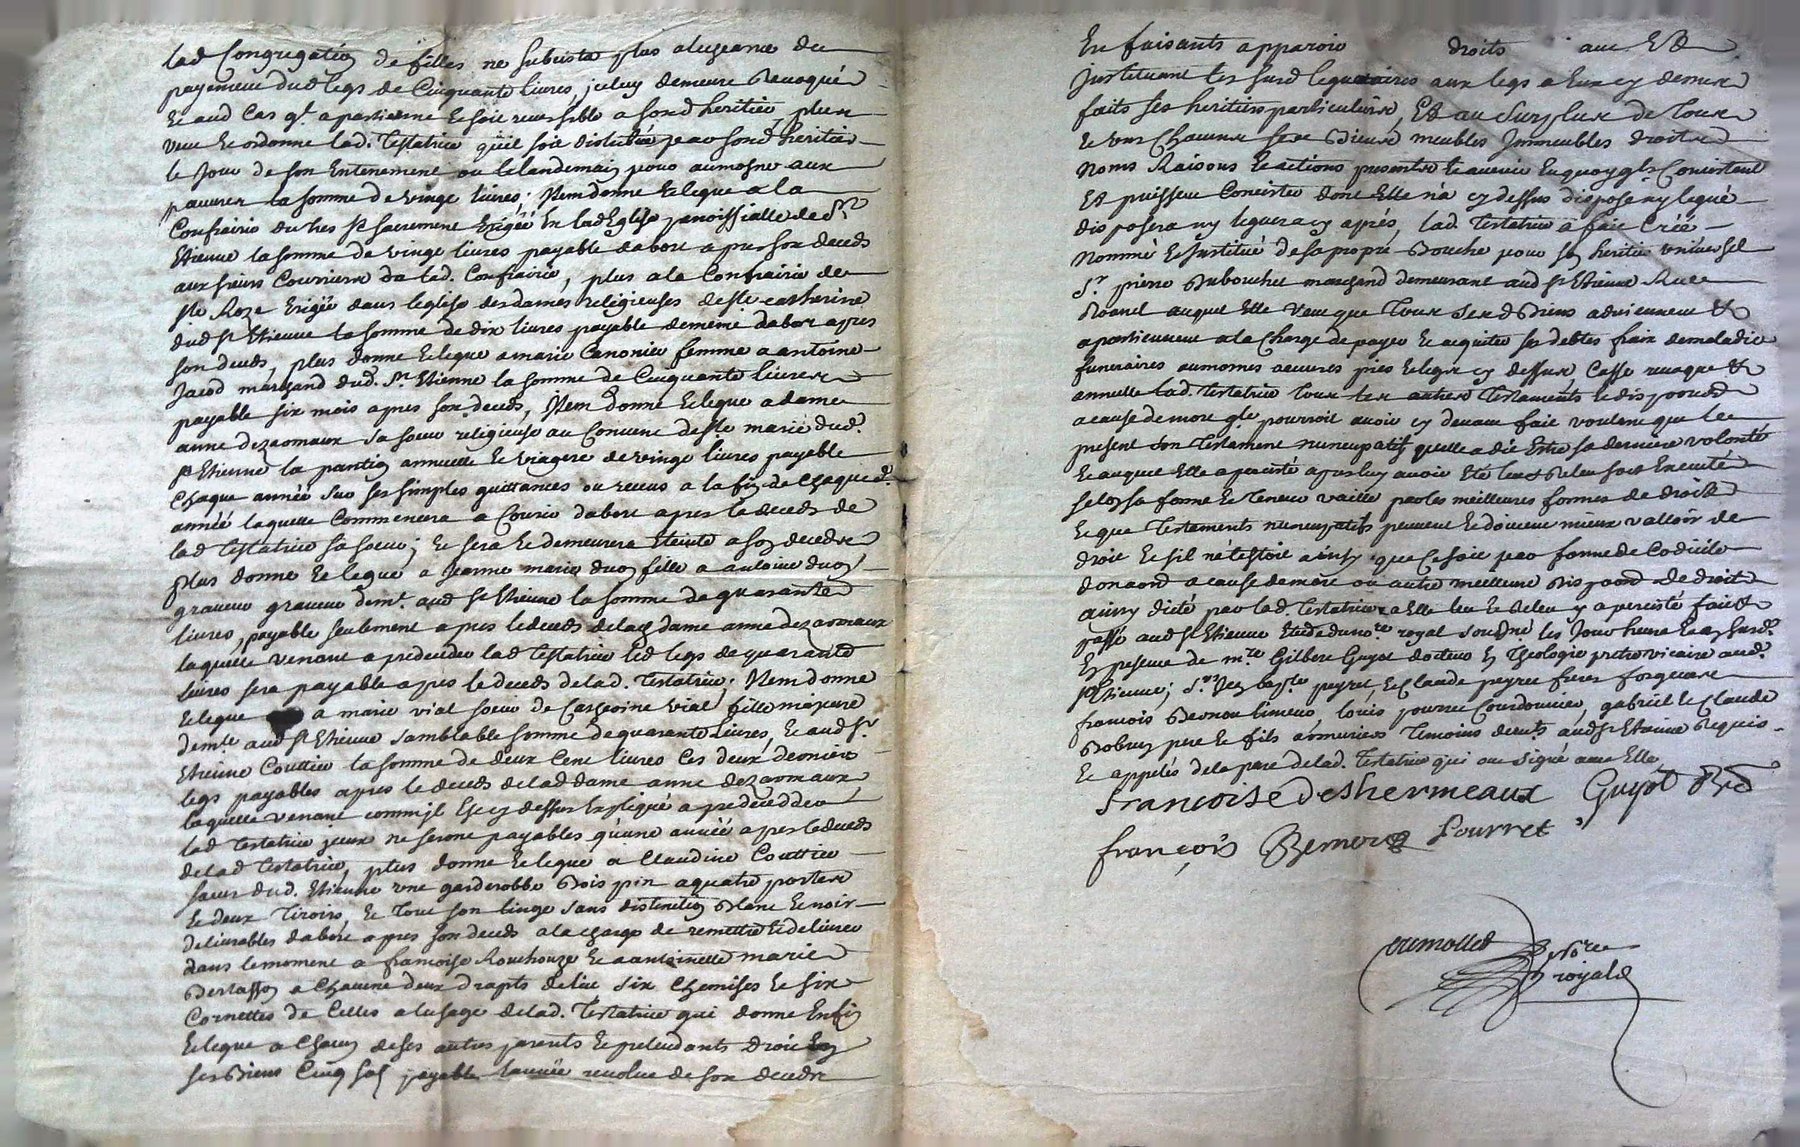 lad Congregation de filles ne subsista plus alegeance du
payement dud legs de Cinquante livres, jceluy demeure Revoqué
Et aud Cas qt apartienne Et soit reversible a sond heritier, plus
veut Et ordonne lad. Testatrice qu'il soit distribué par sond heritier
le Jour de son Enterrement ou le landemain pour aumosne aux
pauvres la somme de vingt livres; Item donne Et legue a la
Confrairie du tres st sacrement Erigée En lad Eglise parroissialle de St
Etienne la somme de vingt livres payable dabort apres son deceds
aux sieurs Courriers da lad. Confrairie, plus a la Confrairie de
ste Roze Erigée dans leglise des dames religieuses de ste catherine
dud st Etienne la somme de dix livres payable dememe dabort apres
son deceds, plus donne Et legue a marie Canonier femme a antoine
Jacod marchand dud. St Etienne la somme de Cinquante livres
payable six mois apres son deceds, Item donne Et legue a dame
anne dezarmaux sa soeur religieuse au Convent de ste marie dud.
st Etienne la pantion annuelle Et viagere de vingt livres payable
Chaque année sur ses simples quittances ou receus a la fin de Chaque d.
année laquelle Commencera a Courir dabort apres le deceds de
lad Testatrice sa soeur; Et sera Et demeurera Eteinte a son deceds
plus donne Et legue a Jeanne marie duon fille a antoine duon
graveur graveur demt. aud st Etienne la somme de quarante
livres, payable seulement apres le deceds delad dame anne dezarmaux
laquelle venant a predeceder lad Testatrice led legs de quarante
livres sera payable apres le deceds delad. Testatrice; Item donne
Et legue a marie vial soeur de Catherine vial fille majeure
demte aud st Etienne samblable somme de quarante livres, Et aud sr
Etienne Couttier la somme de deux Cent livres Ces deux derniers
legs payables apres le deceds de lad dame anne dezarmaux
laquelle venant comme jl Est cy dessus Expliqué a predecedder
lad Testatrice jceux ne seront payables qu'une année apres le deceds
de lad Testatrice, plus donne Et legue a Claudine Couttier
soeur dud. Etienne une garderobbe Bois pin a quatre portes
Et deux Tiroirs, Et Tout son linge sans distinction Blanc Et noir
delivrables dabort apres son deceds a la charge de remettre Et delivrer
dans le moment a francoise Rouchouze Et a antoinette marie
Bertasson a Chacune deux drapts de lit six Chemises Et six
Cornettes de Celles a lusage delad. Testatrice qui donne Enfin
Et legue a Chacun de ses autres parents Et pretendants droit En
ses Biens Cinq sols payable lannée revolue de son deceds
En faisants apparoir droits
Instituant les surd legataires aux legs a Eux cy dessus
faits ses heritiers particuliers, Et au surplus de Tous
Et uns Chacuns ses Biens meubles Immeubles droits
noms Raisons Et actions presents Et avenir En quoy qls Consistent
Et puissent Consister dont Elle n'a cy dessus disposé ny legué
disposera ny leguera cy après, lad Testatrice a fait Créé
Nommé Et Institué desapropre Bouche pour son heritier universel
Sr pierre Dubouchet marchand demeurant aud st Etienne Rue
Roanel auquel Elle veut que Tous sesd Biens adviennent Et
apartiennent a la Charge de payer Et aquiter ses debtes frais demaladie
funeraires aumones oeuvres pies Et legs cy dessus Casse revoque Et
annulle lad. Testatrice Tous les autres Testaments Et dispoond
a cause de mort qle pourroit avoir cy devant fait voulant que le
present son Testament nuncupatif quelle a dit Estre sa derniere volonté
Et auquel Elle a percisté apres luy avoir Eté leu et releu soit Executé
selon sa forme Et Teneur vaille par les meilleures formes de droit
Et que Testaments nuncupatifs peuvent Et doivent mieux valloir de
droit Et sil n'etestoit ainsy que Ce soit par forme de Codicile
donaond a cause de mort ou autre meilleure dispoond de droit
ainsy dicté par lad. Testatrice a Elle leu Et Releu y a percisté fait Et
passé aud st Etienne Etude du nore royal sousné les Jour heure Et an susd.
En presence de mre Gilbert Guyot docteur En Theologie pretre vicaire aud.
st Etienne; srs Jean bapte peyret Et Claude peyret freres forgeurs
francois Bernou limeur, louis pourret Courdonnier, gabriel Et Claude
Robin pere Et fils armuriers Temoins demts aud st Etienne Requis
Et appelés dela part delad. Testatrice qui ont signé avec Elle
francoise deshermeaux Guyot
françois Bernou Pourret
notre
royald